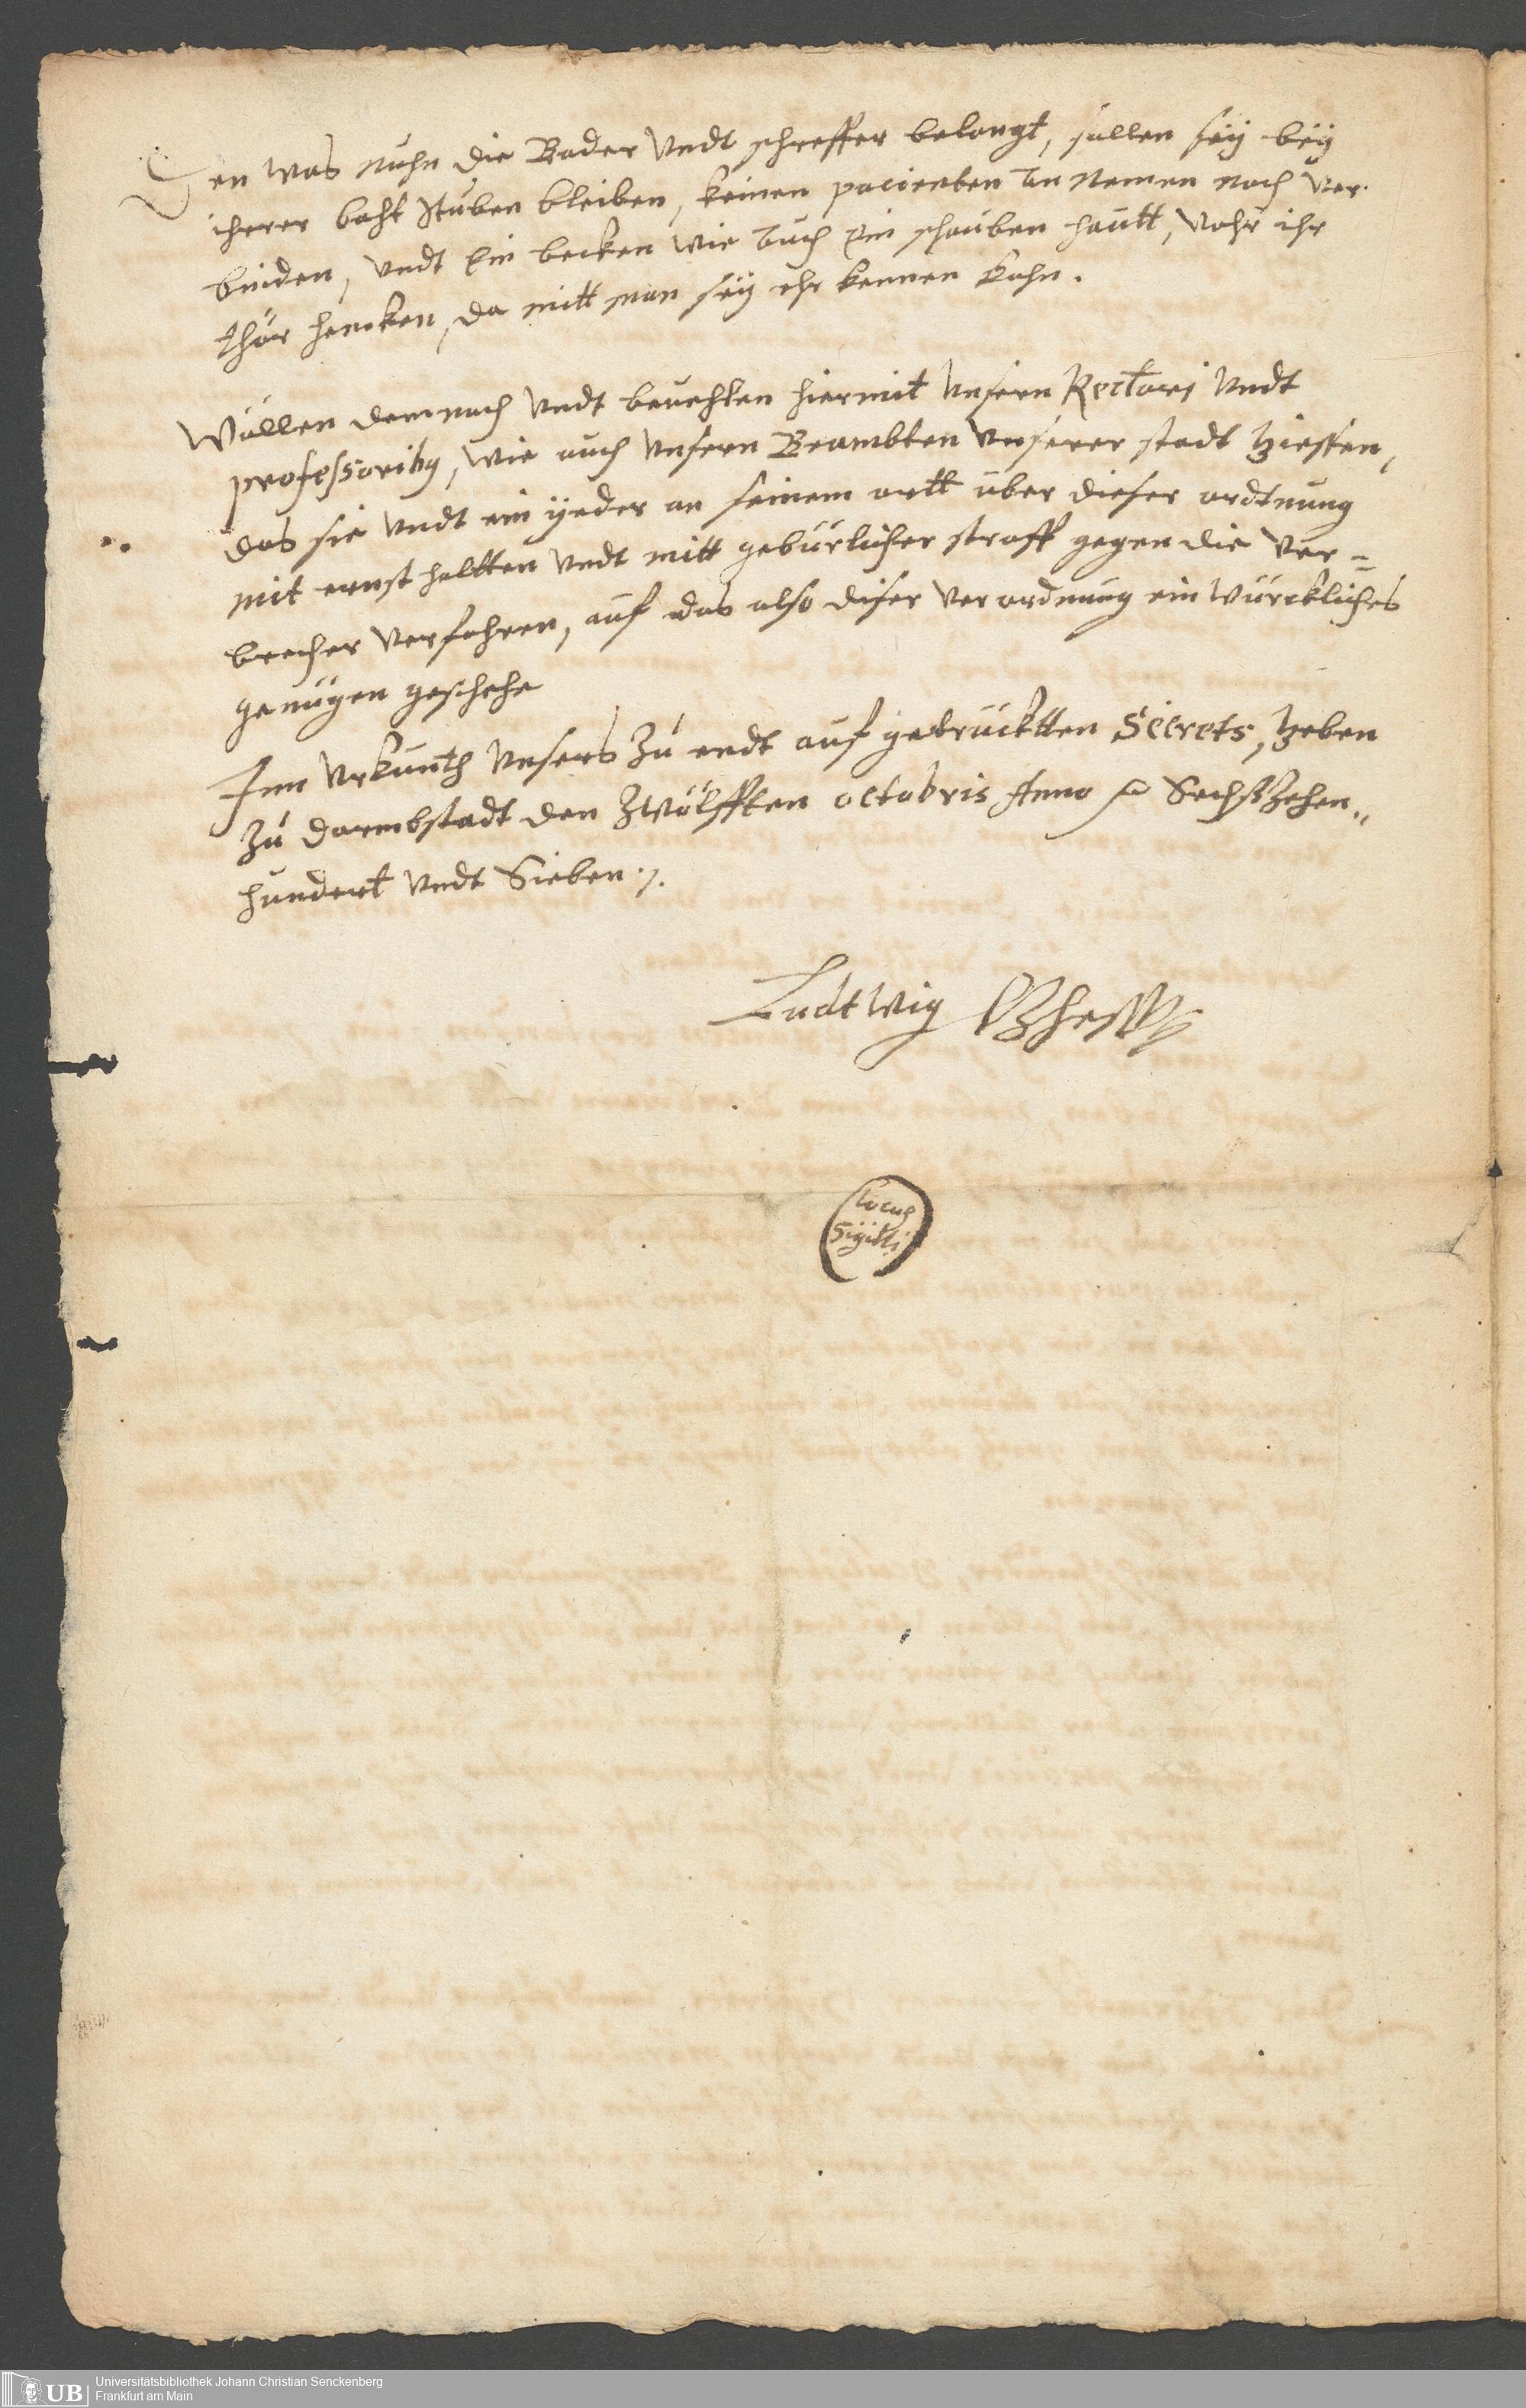 Den was nuhn die Bader Vndt schreffer belangt, sollen seÿ beÿ
iherer baht stuben bleiben, keinen pacienten an Nemen noch ver
binden, Vndt ein becken wie auch ein schauben hautt, vohr ihr
thür hencken, da mitt man seÿ ehr kennen kahn.
Wöllen demnach Vndt beuehlen hiermit Vnsern Rectori Vndt
professoribus, wie auch Vnsern Beambten Vnserer stadt Giessen,
das sie Vndt ein yeder an seinem ortt über dieser ordtnung
mit ernst haltten Vndt mitt gebürlicher straff gegen die Ver=
brecher Verfahren, auf das also diser Verordnung ein würckliches
genügen geschehe
Inn Vrkunth Vnsers zu endt auf gedrucktten Secrets, Geben
zu Darmbstadt den Zwölfften octobris Anno Sechszehen"
hundert Vndt Sieben ./.
Ludtwig LZhessen
Locus
Sigilli
UB Universitätsbibliothek Johann Christian Senckenberg
Frankfurt am Main